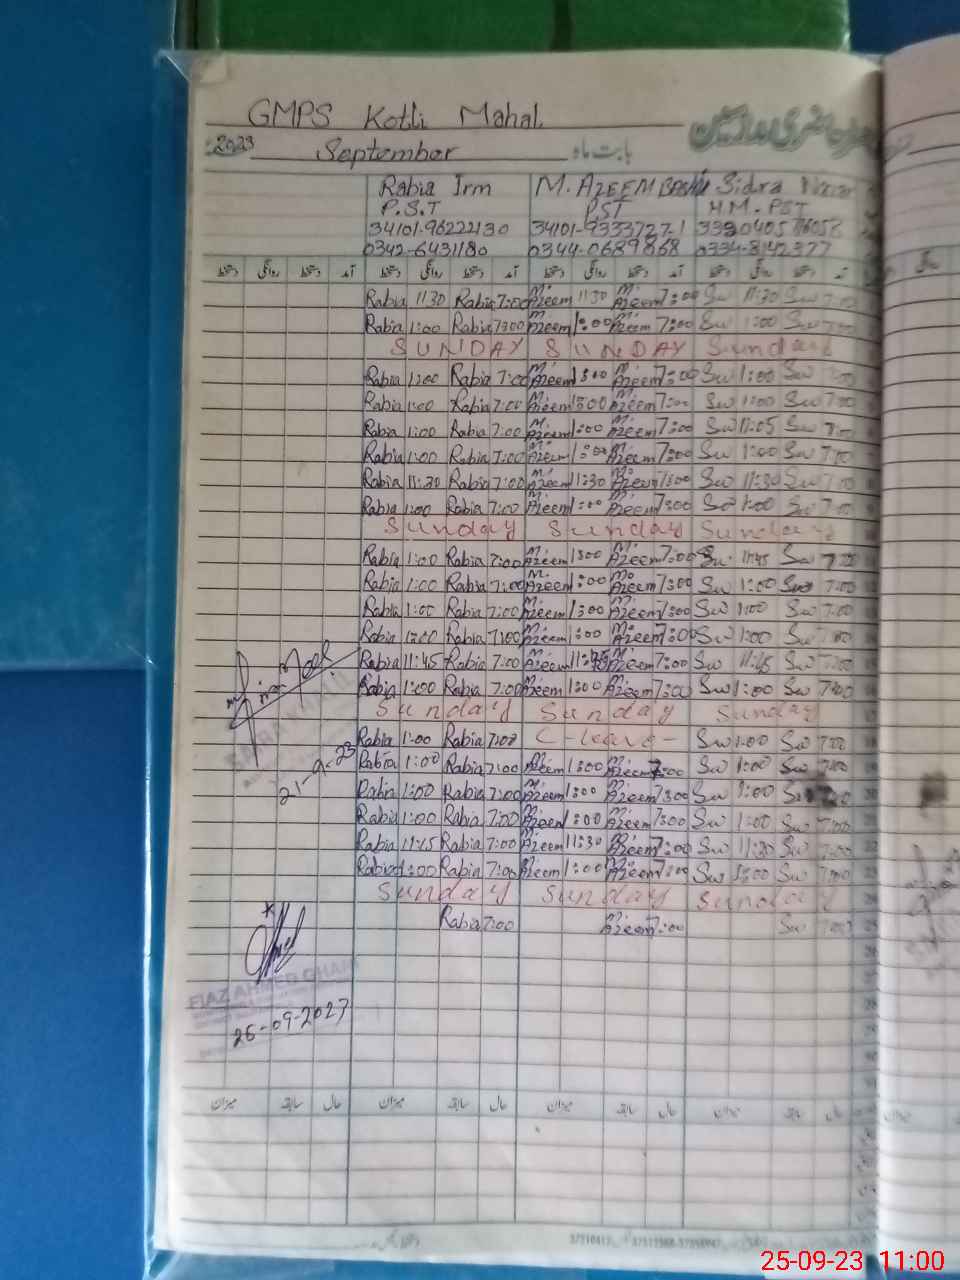 GMPS Kotli Mahal
2023 September بابت ماہ
Rabia Irm M. AZEEM BASHIR Sidra Nazir
P.S.T PST H.M. PST
34101-9622213 0 34101-9333727-1
0342-6431180 0344-0689868 0334-8142377
Rabia 11:30 Rabia 7:00 M. Azeem 11:30 M. Azeem 7:00 Sw 11:30 Sw 7:00
Rabia 1:00 Rabia 7:00 M. Azeem 1:00 M. Azeem 7:00 Sw 1:00 Sw 7:00
SUNDAY SUNDAY Sunday
Rabia 1:00 Rabia 7:00 M. Azeem 1:00 M. Azeem 7:00 Sw 1:00 Sw 7:00
Rabia 1:00 Rabia 7:00 M. Azeem 1:00 M. Azeem 7:00 Sw 1:00 Sw 7:00
Rabia 1:00 Rabia 7:00 M. Azeem 1:00 M. Azeem 7:00 Sw 11:05 Sw 7:00
Rabia 1:00 Rabia 7:00 M. Azeem 1:00 M. Azeem 7:00 Sw 1:00 Sw 7:00
Rabia 11:30 Rabia 7:00 M. Azeem 11:30 M. Azeem 7:00 Sw 11:30 Sw 7:00
Rabia 1:00 Rabia 7:00 M. Azeem 1:00 M. Azeem 7:00 Sw 1:00 Sw 7:00
Sunday Sunday Sunday
Rabia 1:00 Rabia 7:00 M. Azeem 1:00 M. Azeem 7:00 Sw 11:45 Sw 7:00
Rabia 1:00 Rabia 7:00 M. Azeem 1:00 M. Azeem 7:00 Sw 1:00 Sw 7:00
Rabia 1:00 Rabia 7:00 M. Azeem 1:00 M. Azeem 7:00 Sw 1:00 Sw 7:00
Rabia 1:00 Rabia 7:00 M. Azeem 1:00 M. Azeem 7:00 Sw 1:00 Sw 7:00
Rabia 11:45 Rabia 7:00 M. Azeem M. Azeem 7:00 Sw 11:45 Sw 7:00
Rabia 1:00 Rabia 7:00 M. Azeem 1:00 M. Azeem 7:00 Sw 1:00 Sw 7:00
Sunday Sunday Sunday
Rabia 1:00 Rabia 7:00 C-leave- Sw 1:00 Sw 7:00
21-9-23 Rabia 1:00 Rabia 7:00 M. Azeem 1:00 M. Azeem 7:00 Sw 1:00 Sw 7:00
Rabia 1:00 Rabia 7:00 M. Azeem 1:00 M. Azeem 7:00 Sw 1:00
Rabia 1:00 Rabia 7:00 M. Azeem 1:00 M. Azeem 7:00 Sw 1:00 Sw 7:00
Rabia 11:15 Rabia 7:00 M. Azeem 11:30 M. Azeem 7:00 Sw 11:30 Sw 7:00
Rabia 1:00 Rabia 7:00 M. Azeem 1:00 M. Azeem 7:00 Sw 1:00 Sw 7:00
Sunday Sunday Sunday
Rabia 7:00 M. Azeem 7:00 Sw 7:00
FIAZ AHMED
26-09-2023
میزان سابقہ حال میزان سابقہ حال میزان سابقہ حال میزان سابقہ حال
25-09-23 11:00